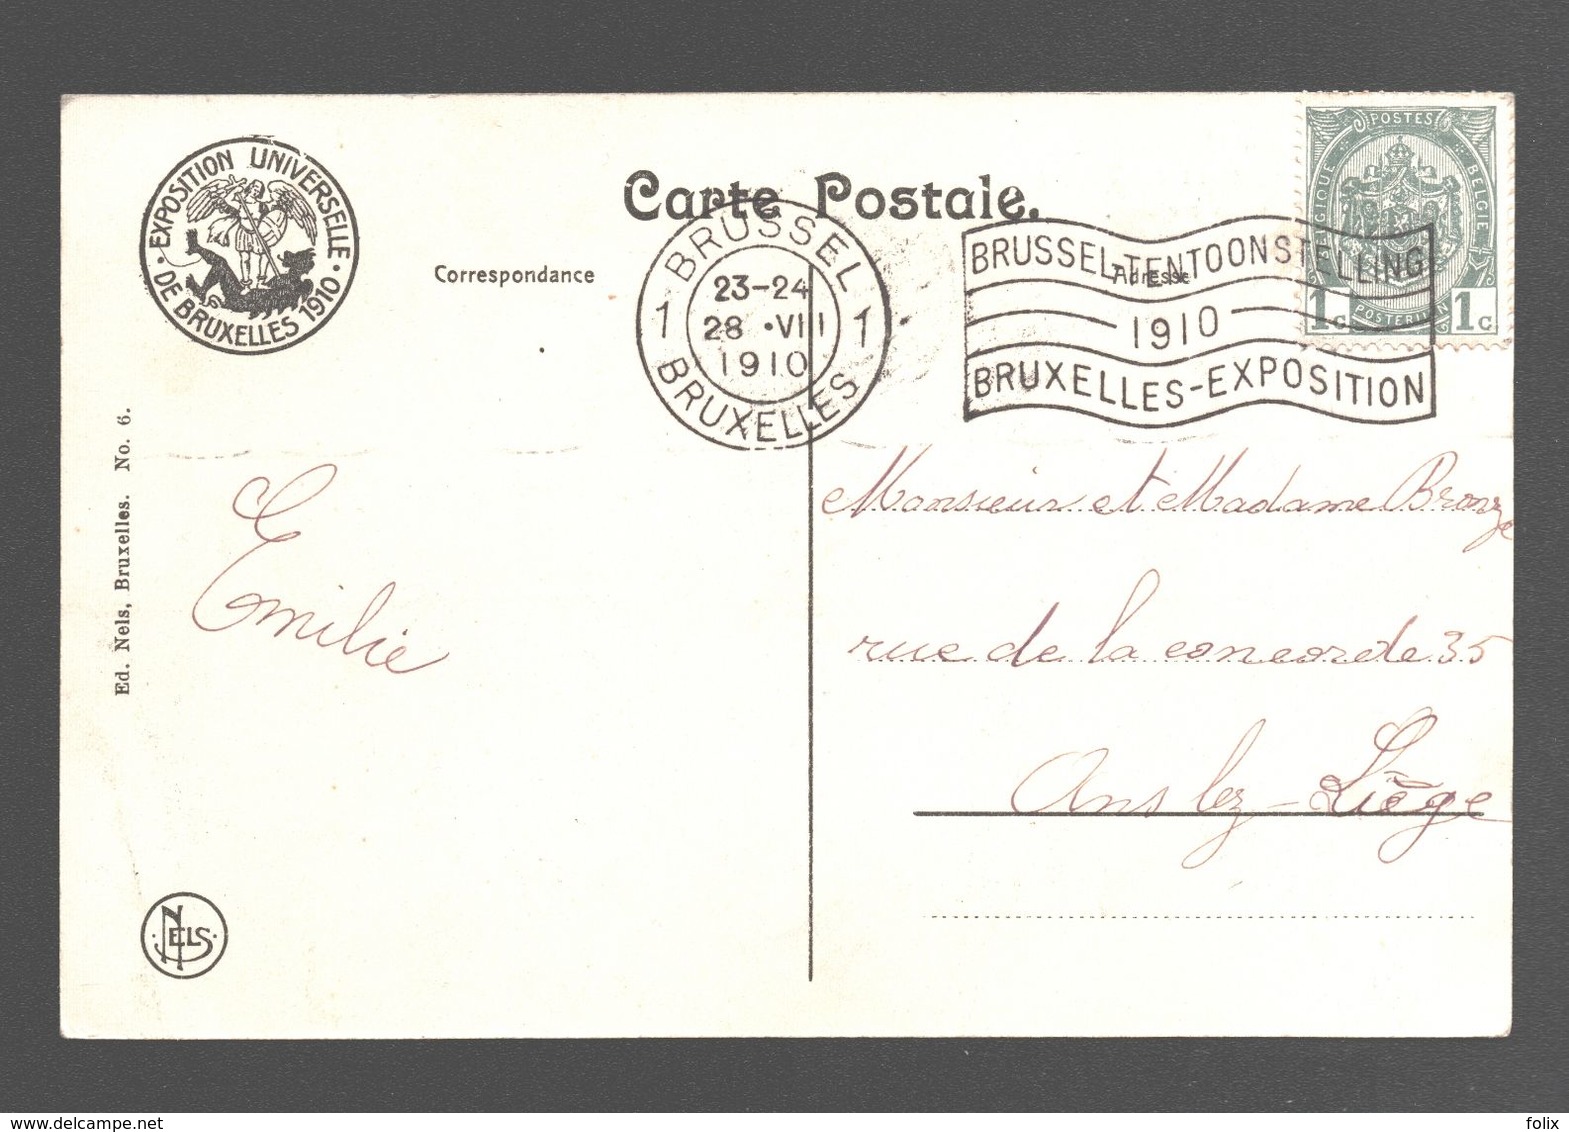 EXPOSITION UNIVERSELLE
DE BRUXELLES 1910
Carte Postale.
Correspondance
Adresse
1 BRUSSEL 1
23-24
28 · VIII
1910
BRUXELLES
BRUSSEL-TENTOONSTELLING
1910
BRUXELLES-EXPOSITION
POSTES
BELGIQUE
BELGIE
POSTERIJEN
1c 1c
Ed. Nels, Bruxelles. No. 6.
Emilie
Monsieur et Madame Bronze
rue de la concorde 35
Ans lez-Liège
NELS
felix